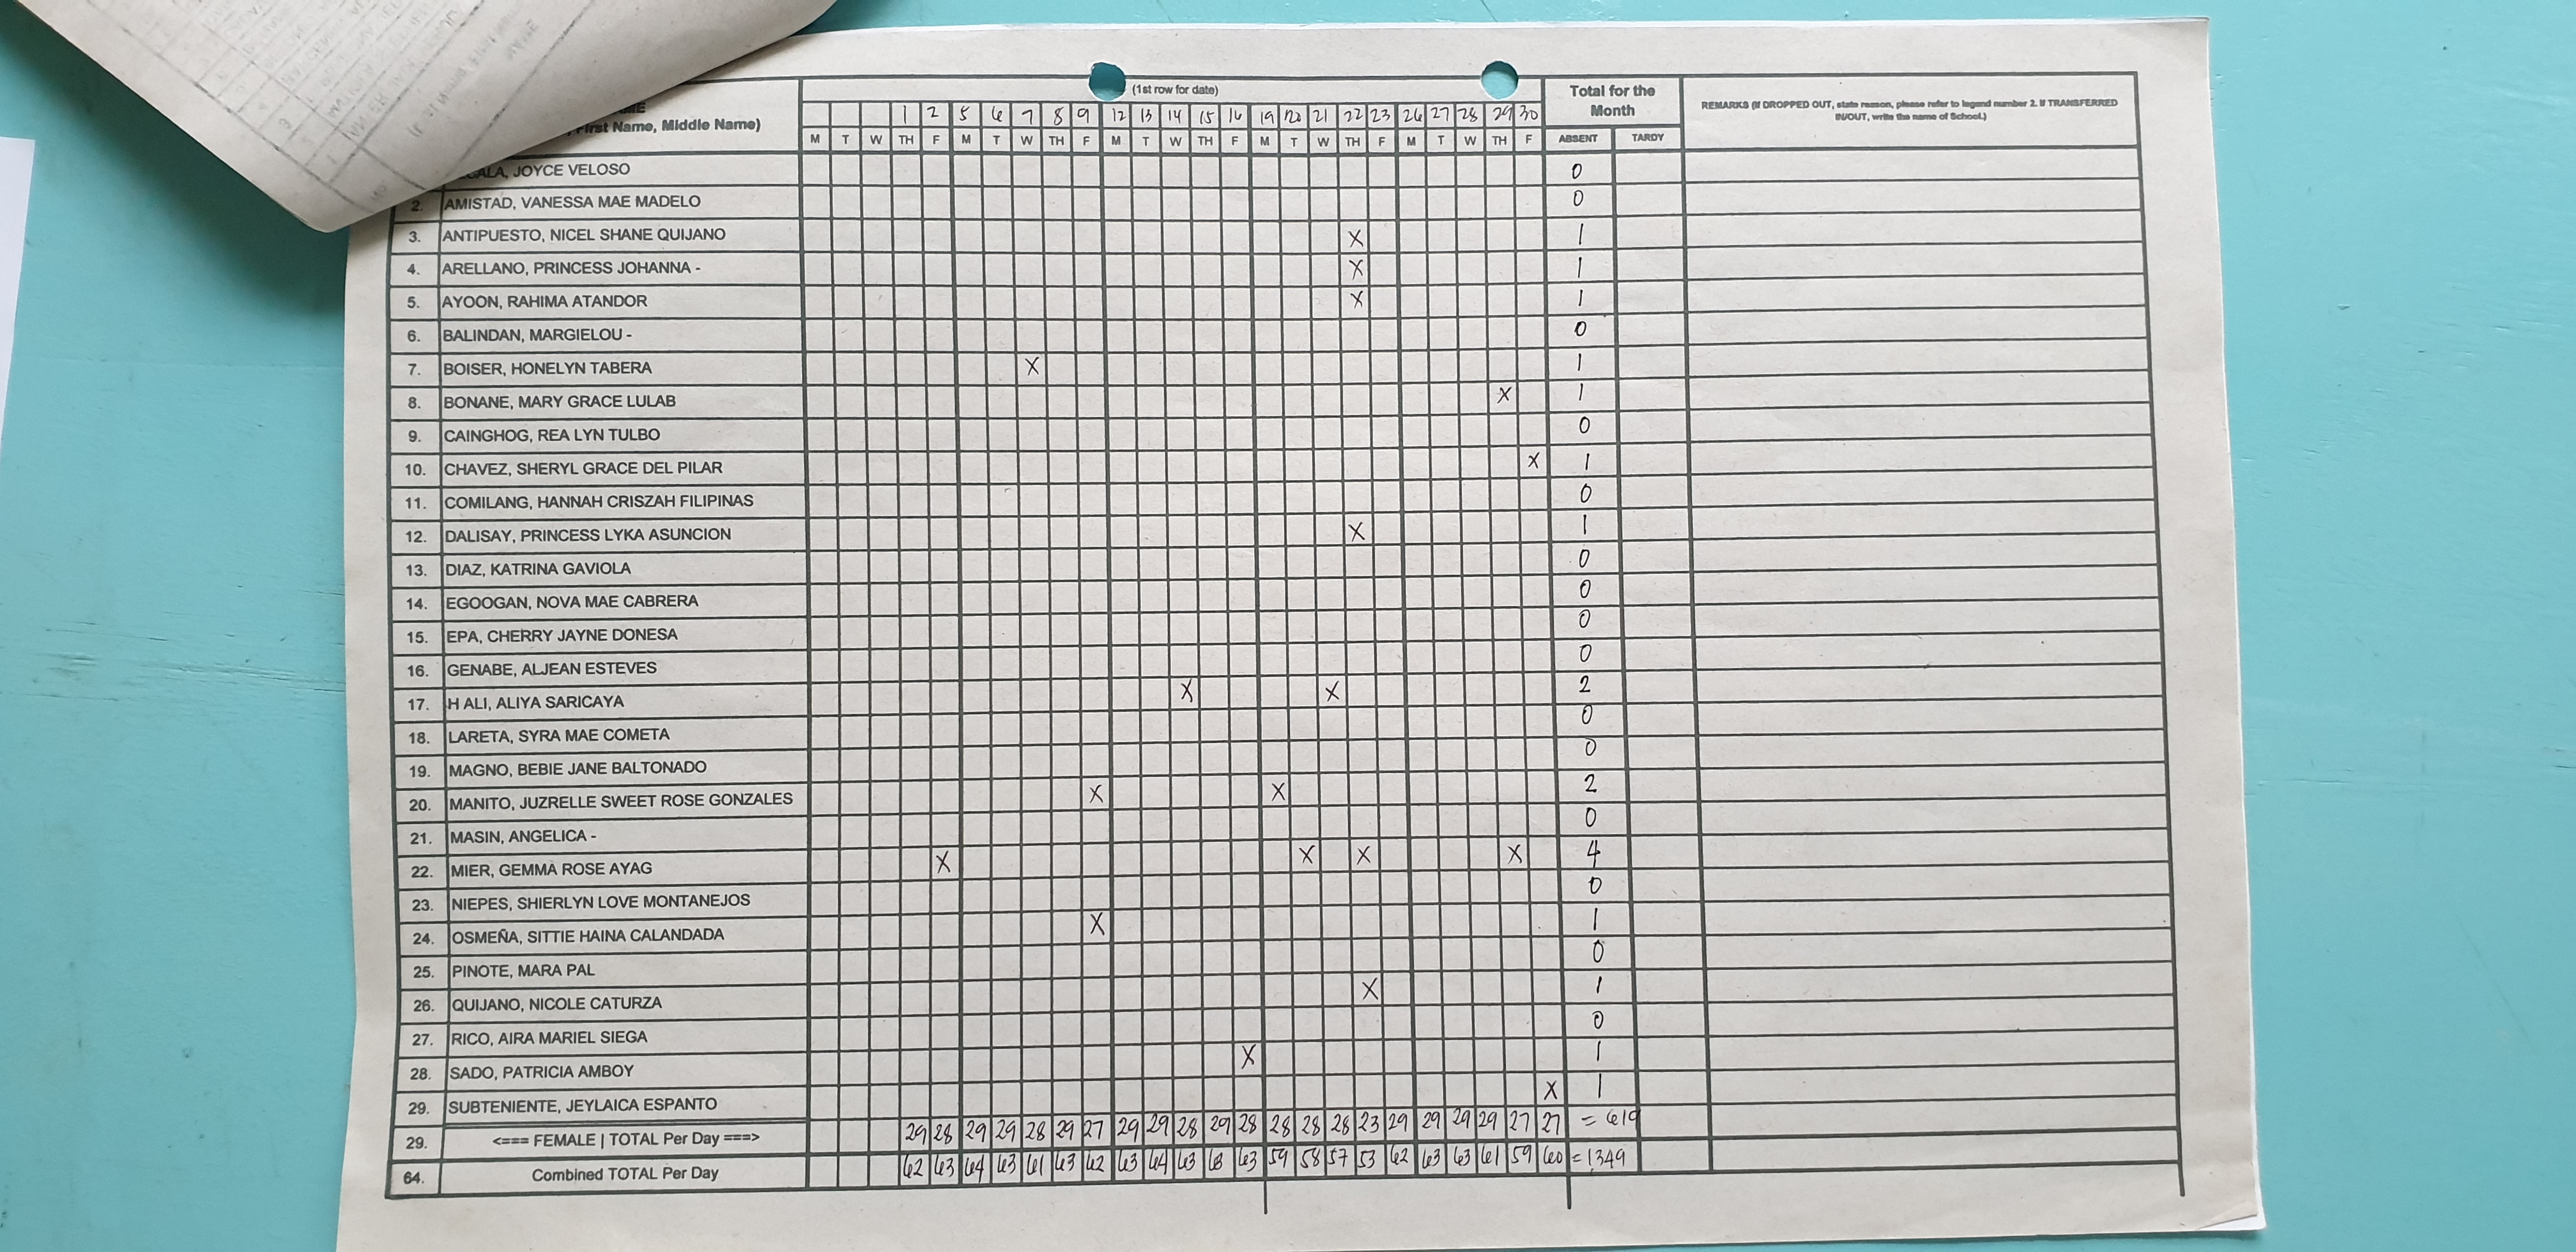 (1st row for date)
Total for the Month
REMARKS (If DROPPED OUT, state reason, please refer to legend number 2. If TRANSFERRED IN/OUT, write the name of School.)
First Name, Middle Name)
1 2 5 6 7 8 9 12 13 14 15 16 19 20 21 22 23 26 27 28 29 30
M T W TH F M T W TH F M T W TH F M T W TH F M T W TH F ABSENT TARDY
JOYCE VELOSO 0
2. AMISTAD, VANESSA MAE MADELO 0
3. ANTIPUESTO, NICEL SHANE QUIJANO X 1
4. ARELLANO, PRINCESS JOHANNA - X 1
5. AYOON, RAHIMA ATANDOR X 1
6. BALINDAN, MARGIELOU - 0
7. BOISER, HONELYN TABERA X 1
8. BONANE, MARY GRACE LULAB X 1
9. CAINGHOG, REA LYN TULBO 0
10. CHAVEZ, SHERYL GRACE DEL PILAR X 1
11. COMILANG, HANNAH CRISZAH FILIPINAS 0
12. DALISAY, PRINCESS LYKA ASUNCION X 1
13. DIAZ, KATRINA GAVIOLA 0
14. EGOOGAN, NOVA MAE CABRERA 0
15. EPA, CHERRY JAYNE DONESA 0
16. GENABE, ALJEAN ESTEVES 0
17. H ALI, ALIYA SARICAYA X X 2
18. LARETA, SYRA MAE COMETA 0
19. MAGNO, BEBIE JANE BALTONADO 0
20. MANITO, JUZRELLE SWEET ROSE GONZALES X X 2
21. MASIN, ANGELICA - 0
22. MIER, GEMMA ROSE AYAG X X X X 4
23. NIEPES, SHIERLYN LOVE MONTANEJOS 0
24. OSMEÑA, SITTIE HAINA CALANDADA X 1
25. PINOTE, MARA PAL 0
26. QUIJANO, NICOLE CATURZA X 1
27. RICO, AIRA MARIEL SIEGA 0
28. SADO, PATRICIA AMBOY X 1
29. SUBTENIENTE, JEYLAICA ESPANTO X 1
29. <=== FEMALE | TOTAL Per Day ===> 29 28 29 29 28 29 27 29 29 28 29 28 28 28 28 23 29 29 29 29 27 27 = 619
64. Combined TOTAL Per Day 62 63 64 63 61 63 62 63 64 63 63 59 58 57 53 62 63 63 61 59 60 = 1349